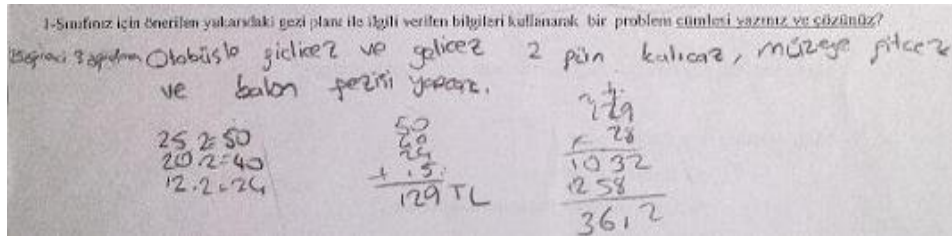 1-Sınıfınız için önerilen yukarıdaki gezi planı ile ilgili verilen bilgileri kullanarak bir problem cümlesi yazınız ve çözünüz?
Otobüsle gidicez ve gelicez 2 gün kalıcaz, müzeye gitcez
ve balon gezisi yapcaz.
25.2=50
20.2=40
12.2=24
50
24
+ 15
129 TL
129
x 28
1032
258
3612